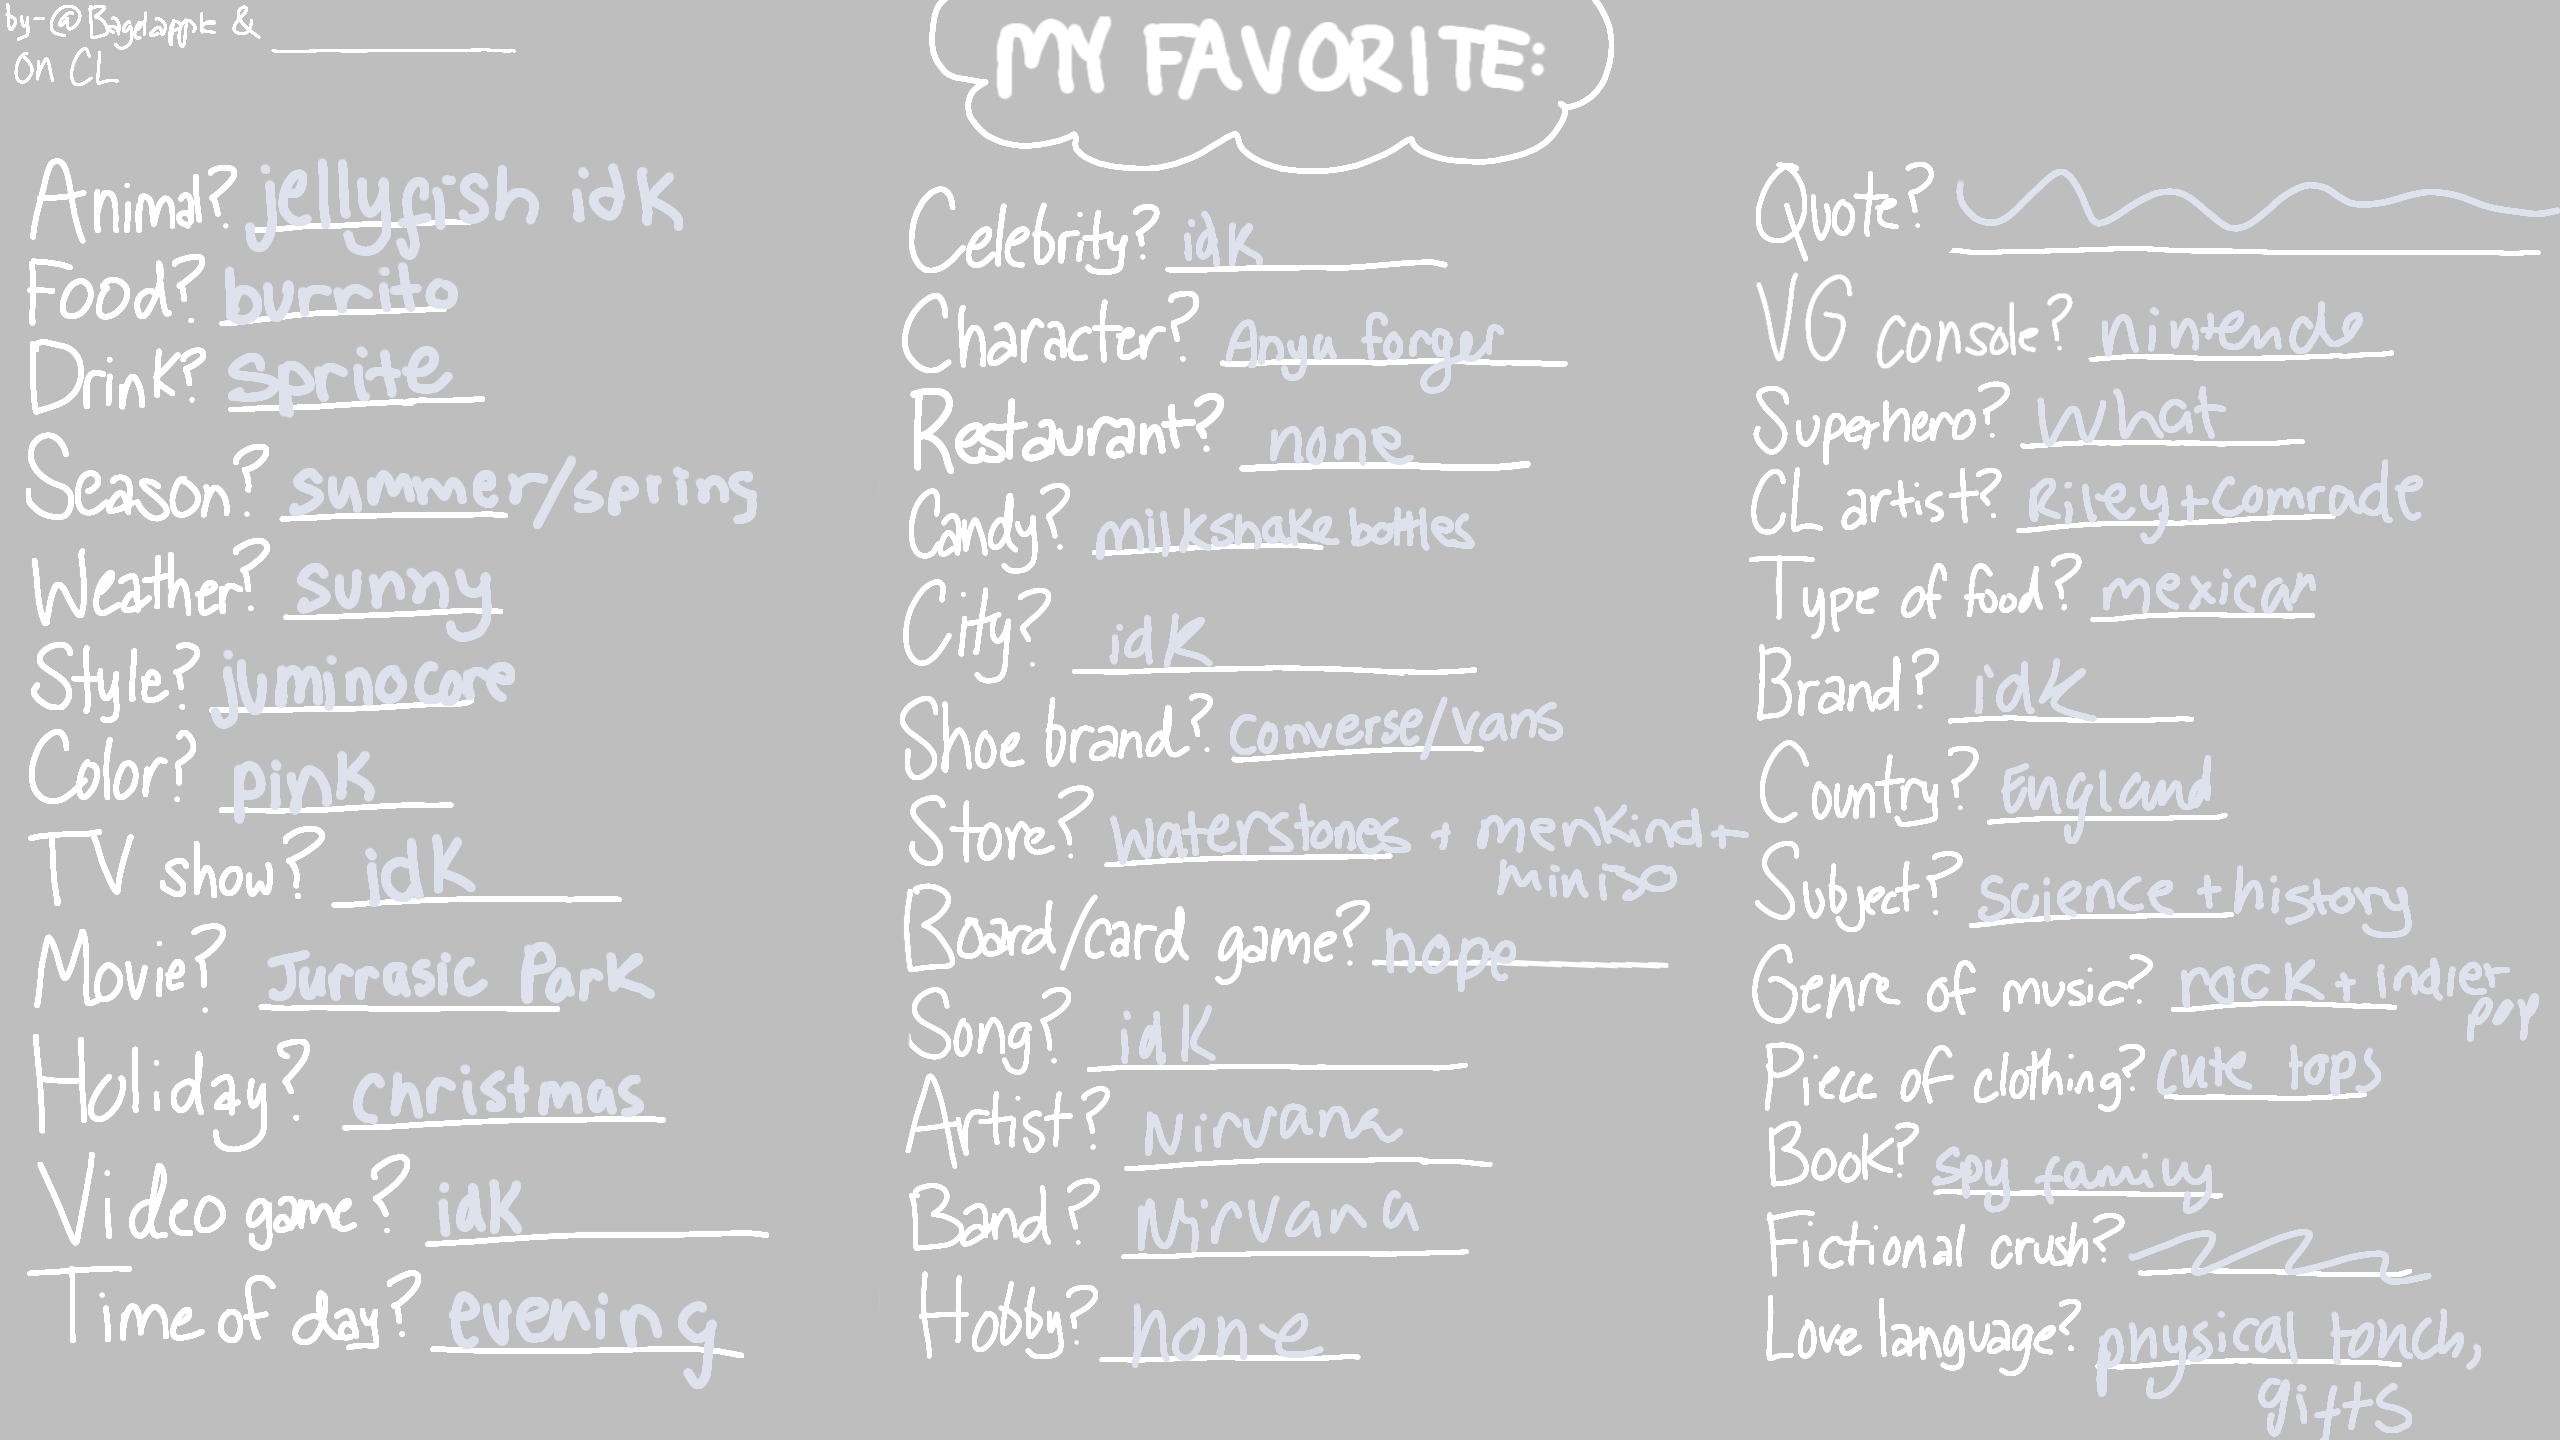 by-@Bagelapple &
on CL
MY FAVORITE:
Animal? jellyfish idk
Food? burrito
Drink? sprite
Season? summer/spring
Weather? sunny
Style? juminocore
Color? pink
TV show? idk
Movie? Jurrasic Park
Holiday? christmas
Video game? idk
Time of day? evening
Celebrity? idk
Character? Anya forger
Restaurant? none
Candy? milkshake bottles
City? idk
Shoe brand? converse/vans
Store? waterstones + menkind +
miniso
Board/card game? nope
Song? idk
Artist? Nirvana
Band? Nirvana
Hobby? none
Quote?
VG console? nintendo
Superhero? what
CL artist? Riley+comrade
Type of food? mexican
Brand? idk
Country? England
Subject? science + history
Genre of music? rock + indie+
pop
Piece of clothing? cute tops
Book? spy family
Fictional crush?
Love language? physical touch,
gifts